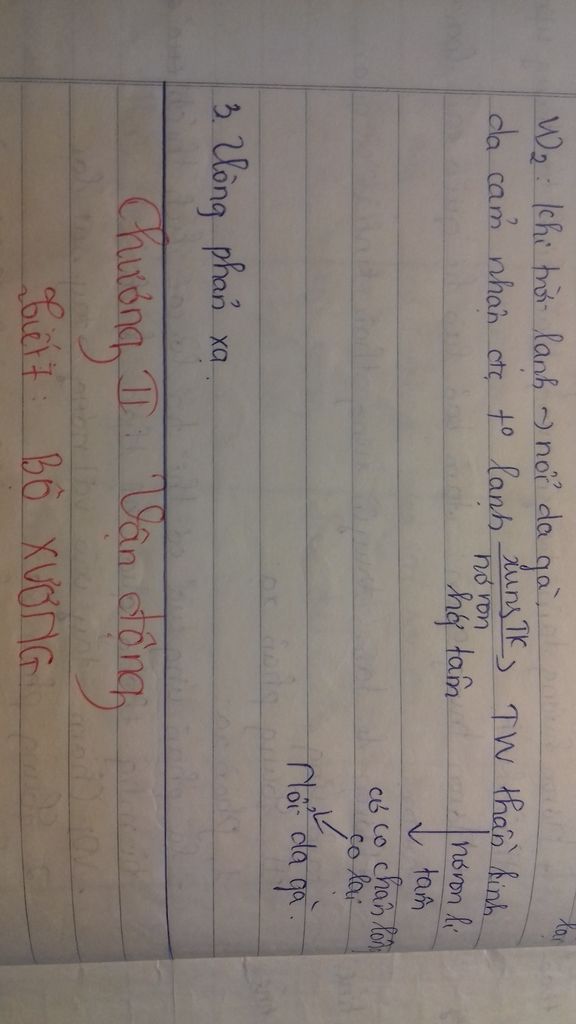 lại
VD2: Khi trời lạnh → nổi da gà.
da cảm nhận đc t° lạnh xung TK → TW thần kinh
nơron
hướng tâm
nơron li
tâm
cơ co chân lông
co lại
Nổi da gà.
3. Vòng phản xạ.
Chương II: Vận động
Tiết 7: BỘ XƯƠNG